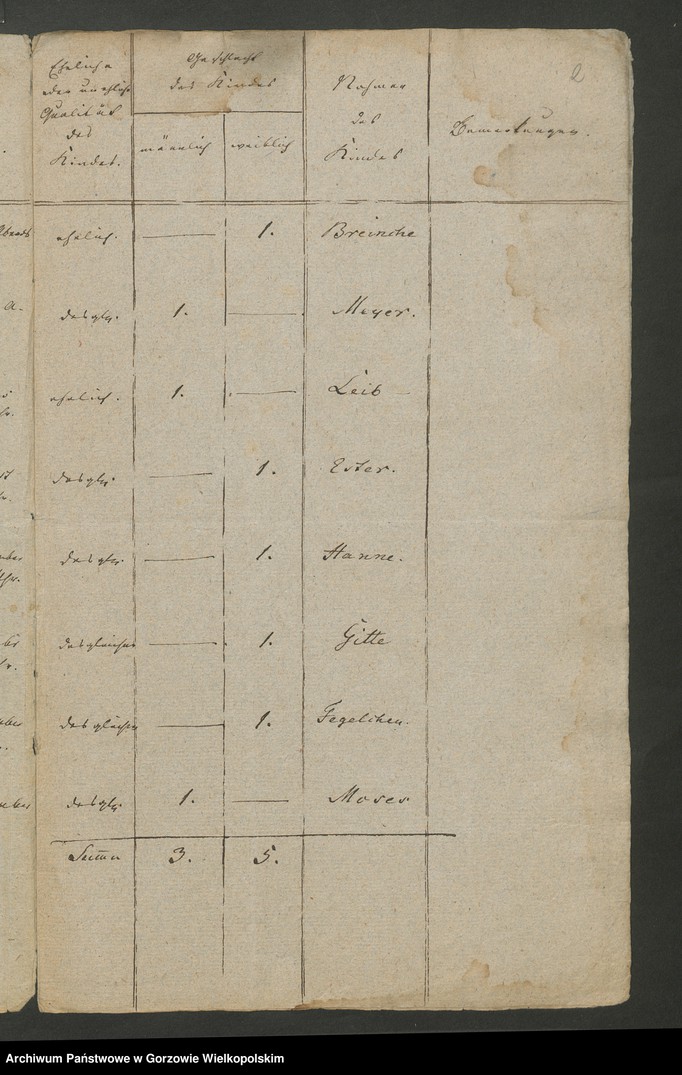 2
Eheliche
oder uneheliche
Qualität
des
Kindes.
Geschlecht
des Kindes
männlich
weiblich
Nahmen
des
Kindes
Bemerkungen.
ehelich. — 1. Breinche
desgl. 1. — Meyer.
ehelich. 1. — Leib —
desgl. — 1. Ester.
desgl. — 1. Hanne.
desgleichen — 1. Gitte
desgleichen — 1. Fegelchen.
desgl. 1. — Moses
Summa 3. 5.
Archiwum Państwowe w Gorzowie Wielkopolskim